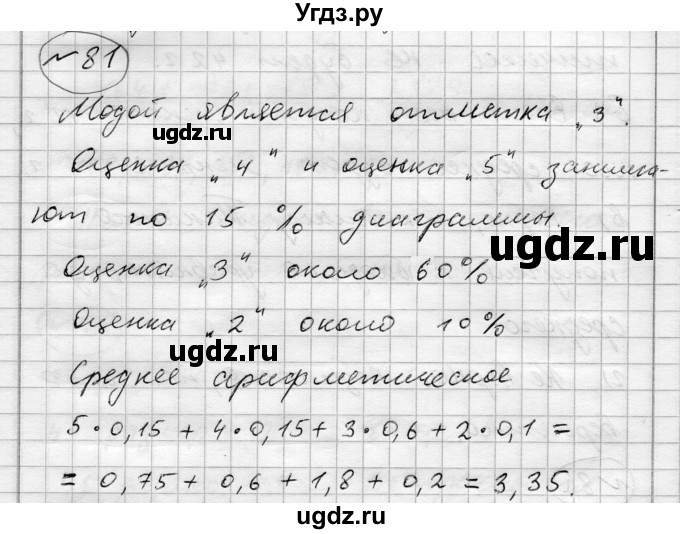 Угдз.ру
№81
Модой является отметка „3“.
Оценка „4“ и оценка „5“ занима-
ют по 15 % диаграммы.
Оценка „3“ около 60%
Оценка „2“ около 10%
Среднее арифметическое
5·0,15 + 4·0,15 + 3·0,6 + 2·0,1 =
= 0,75 + 0,6 + 1,8 + 0,2 = 3,35.
ugdz.ru
ugdz.ru
ugdz.ru
ugdz.ru
ugdz.ru